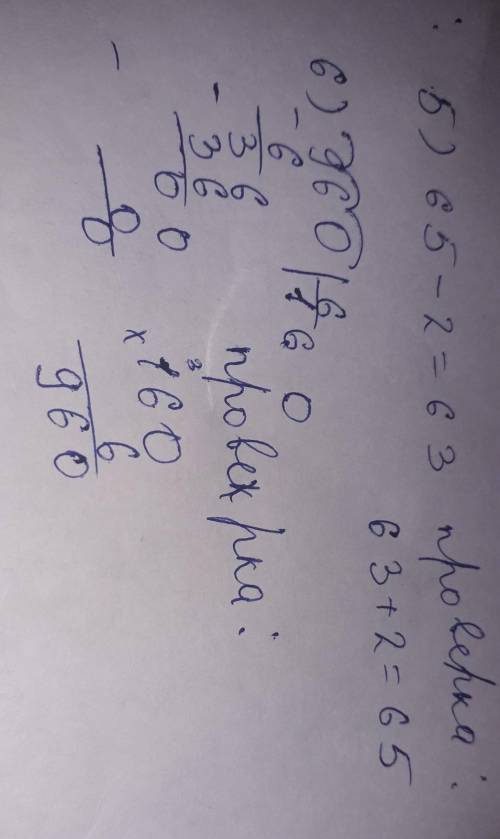 5) 65-2=63 проверка:
63+2=65
6) 960|6
-6 160
36
-36
00
-0
0
проверка:
³
160
x 6
960